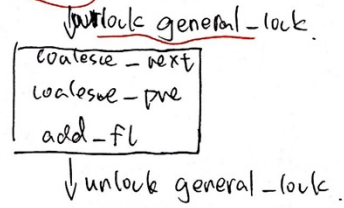 unlock general_lock.
coalesce_next
coalesce_pre
add_fl
unlock general_lock.